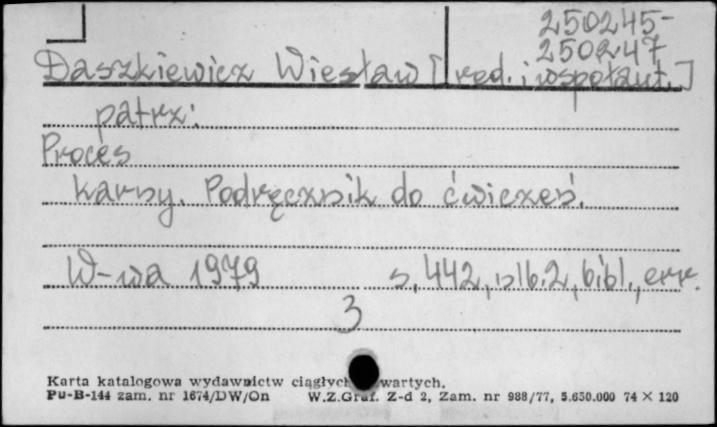 250245-
250247
Daszkiewicz Wiesław [red. i współaut.]
patrz:
Proces
karny. Podręcznik do ćwiczeń.
W-wa 1979 s. 442, nlb. 2, bibl., err.
3
Karta katalogowa wydawnictw ciągłych wartych.
Pu-B-144 zam. nr 1674/DW/On W.Z.Graf. Z-d 2, Zam. nr 988/77, 5.650.000 74 X 120